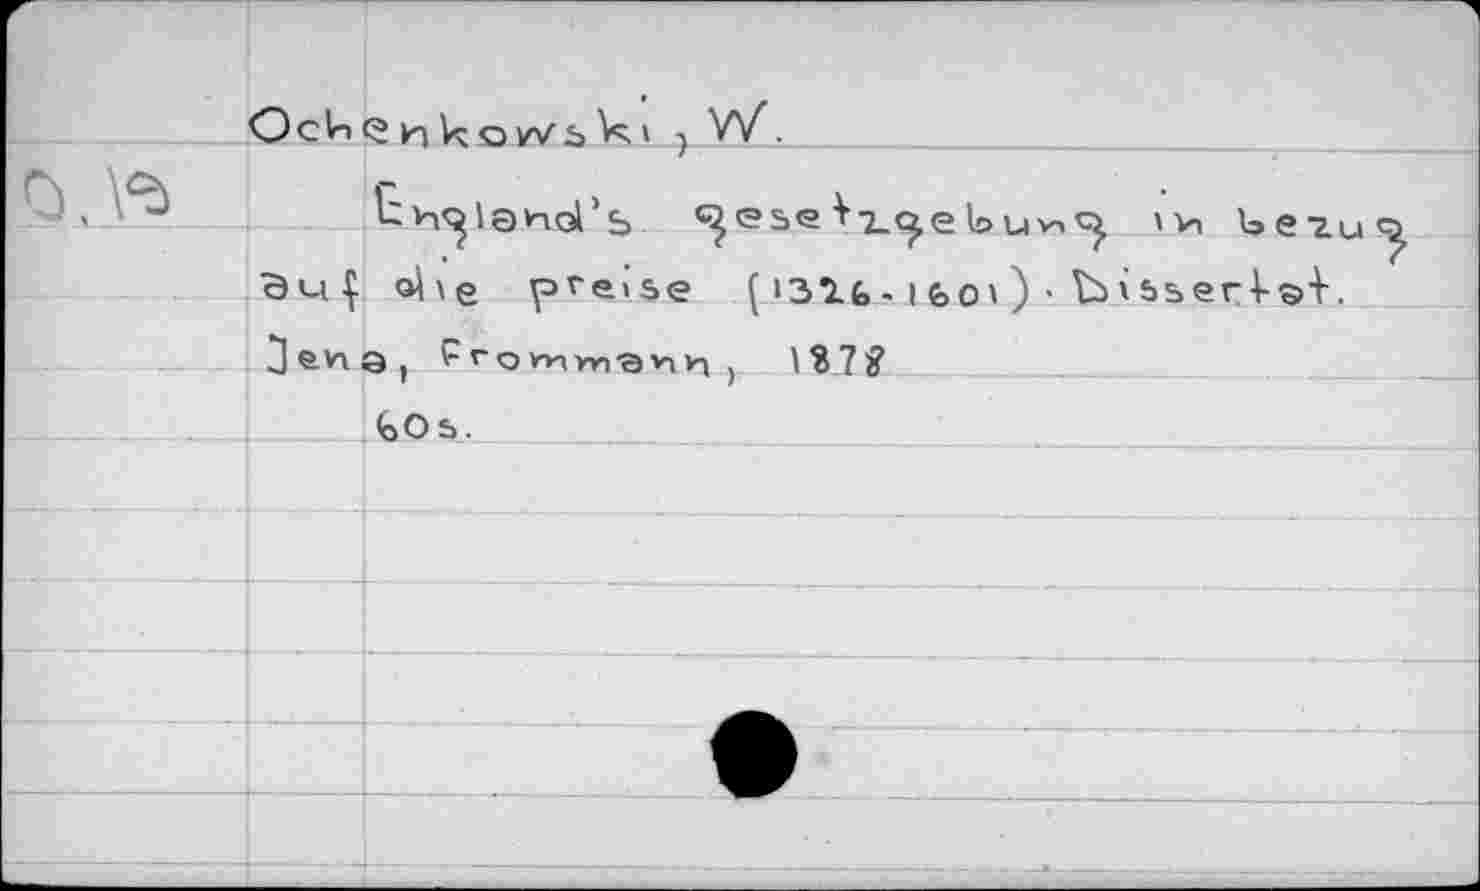 Ochenkowski, W.
England's gesetzgebung in bezug
auf die preise (1326-1601). Dissertat.
Jena, Frommann, 1878
60s.